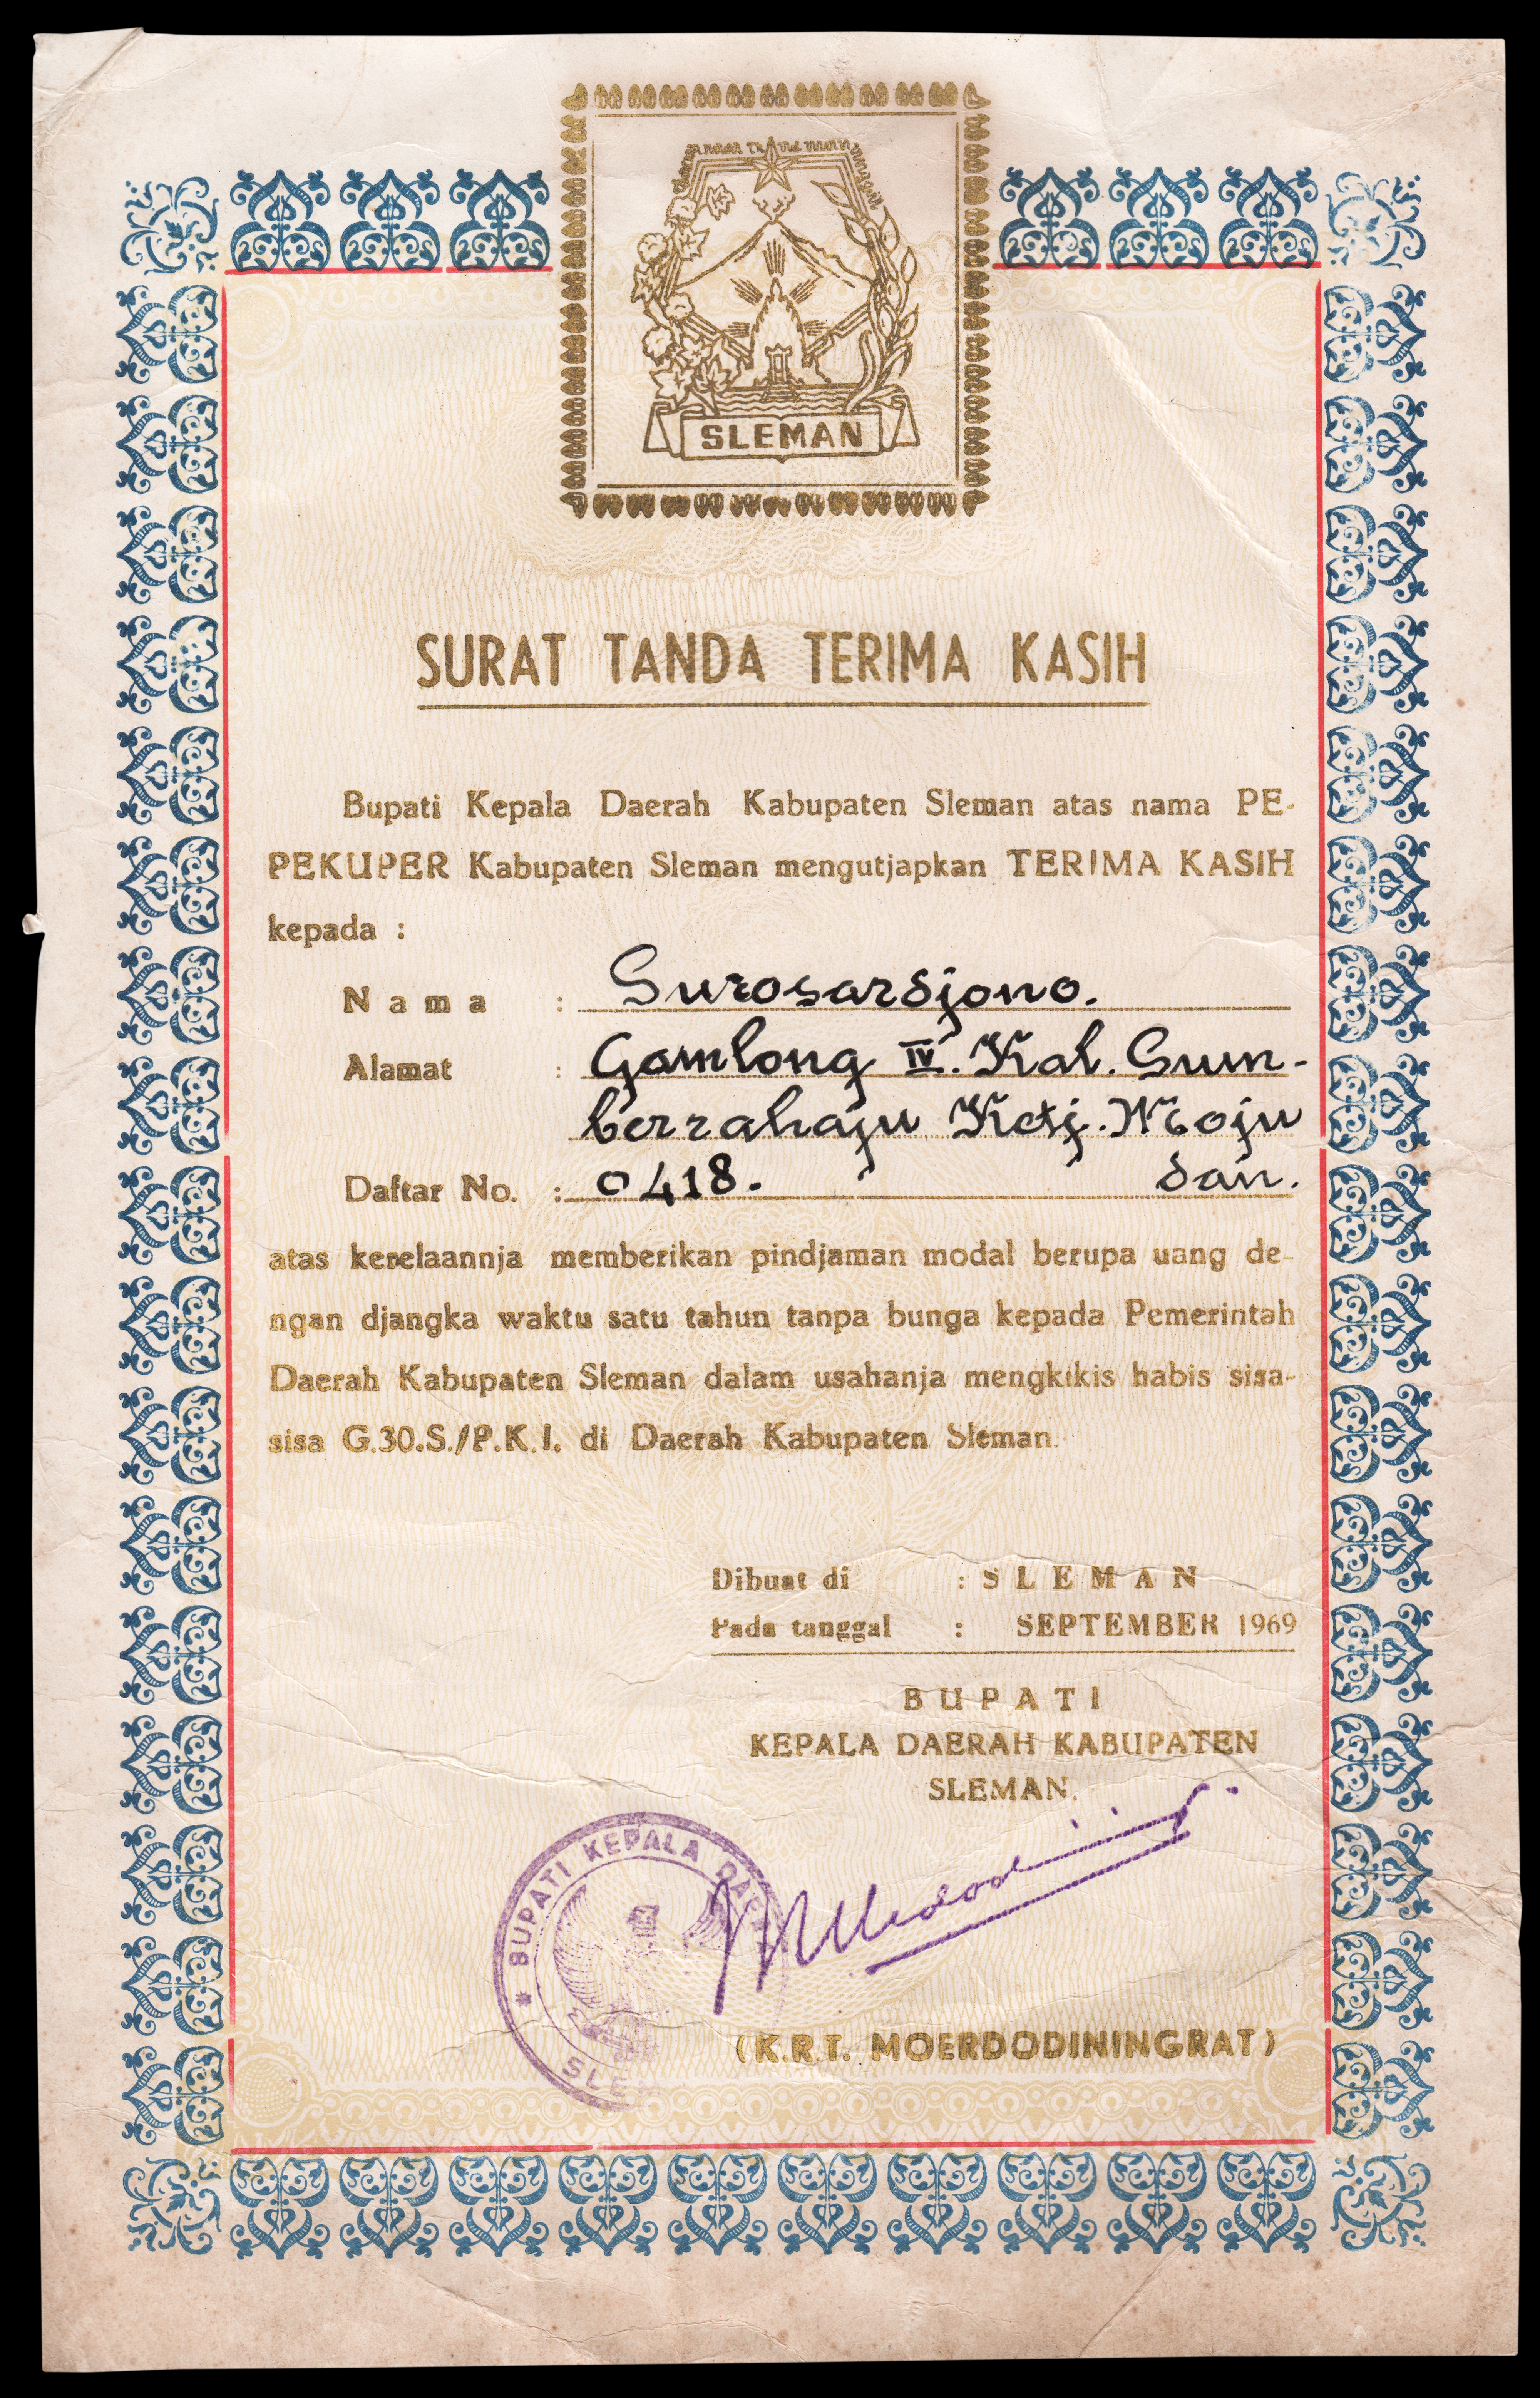 SLEMAN
SURAT TANDA TERIMA KASIH
Bupati Kepala Daerah Kabupaten Sleman atas nama PE-
PEKUPER Kabupaten Sleman mengutjapkan TERIMA KASIH
kepada :
Nama : Surosardjono.
Alamat : Gamlong IV. Kal. Sum-
berrahaju Ketj. Moju
Daftar No. : 0418. dan.
atas kerelaannja memberikan pindjaman modal berupa uang de-
ngan djangka waktu satu tahun tanpa bunga kepada Pemerintah
Daerah Kabupaten Sleman dalam usahanja mengkikis habis sisa-
sisa G.30.S./P.K.I. di Daerah Kabupaten Sleman.
Dibuat di : SLEMAN
Pada tanggal : SEPTEMBER 1969
BUPATI
KEPALA DAERAH KABUPATEN
SLEMAN.
BUPATI KEPALA DAE
SLE
(K.R.T. MOERDODININGRAT)